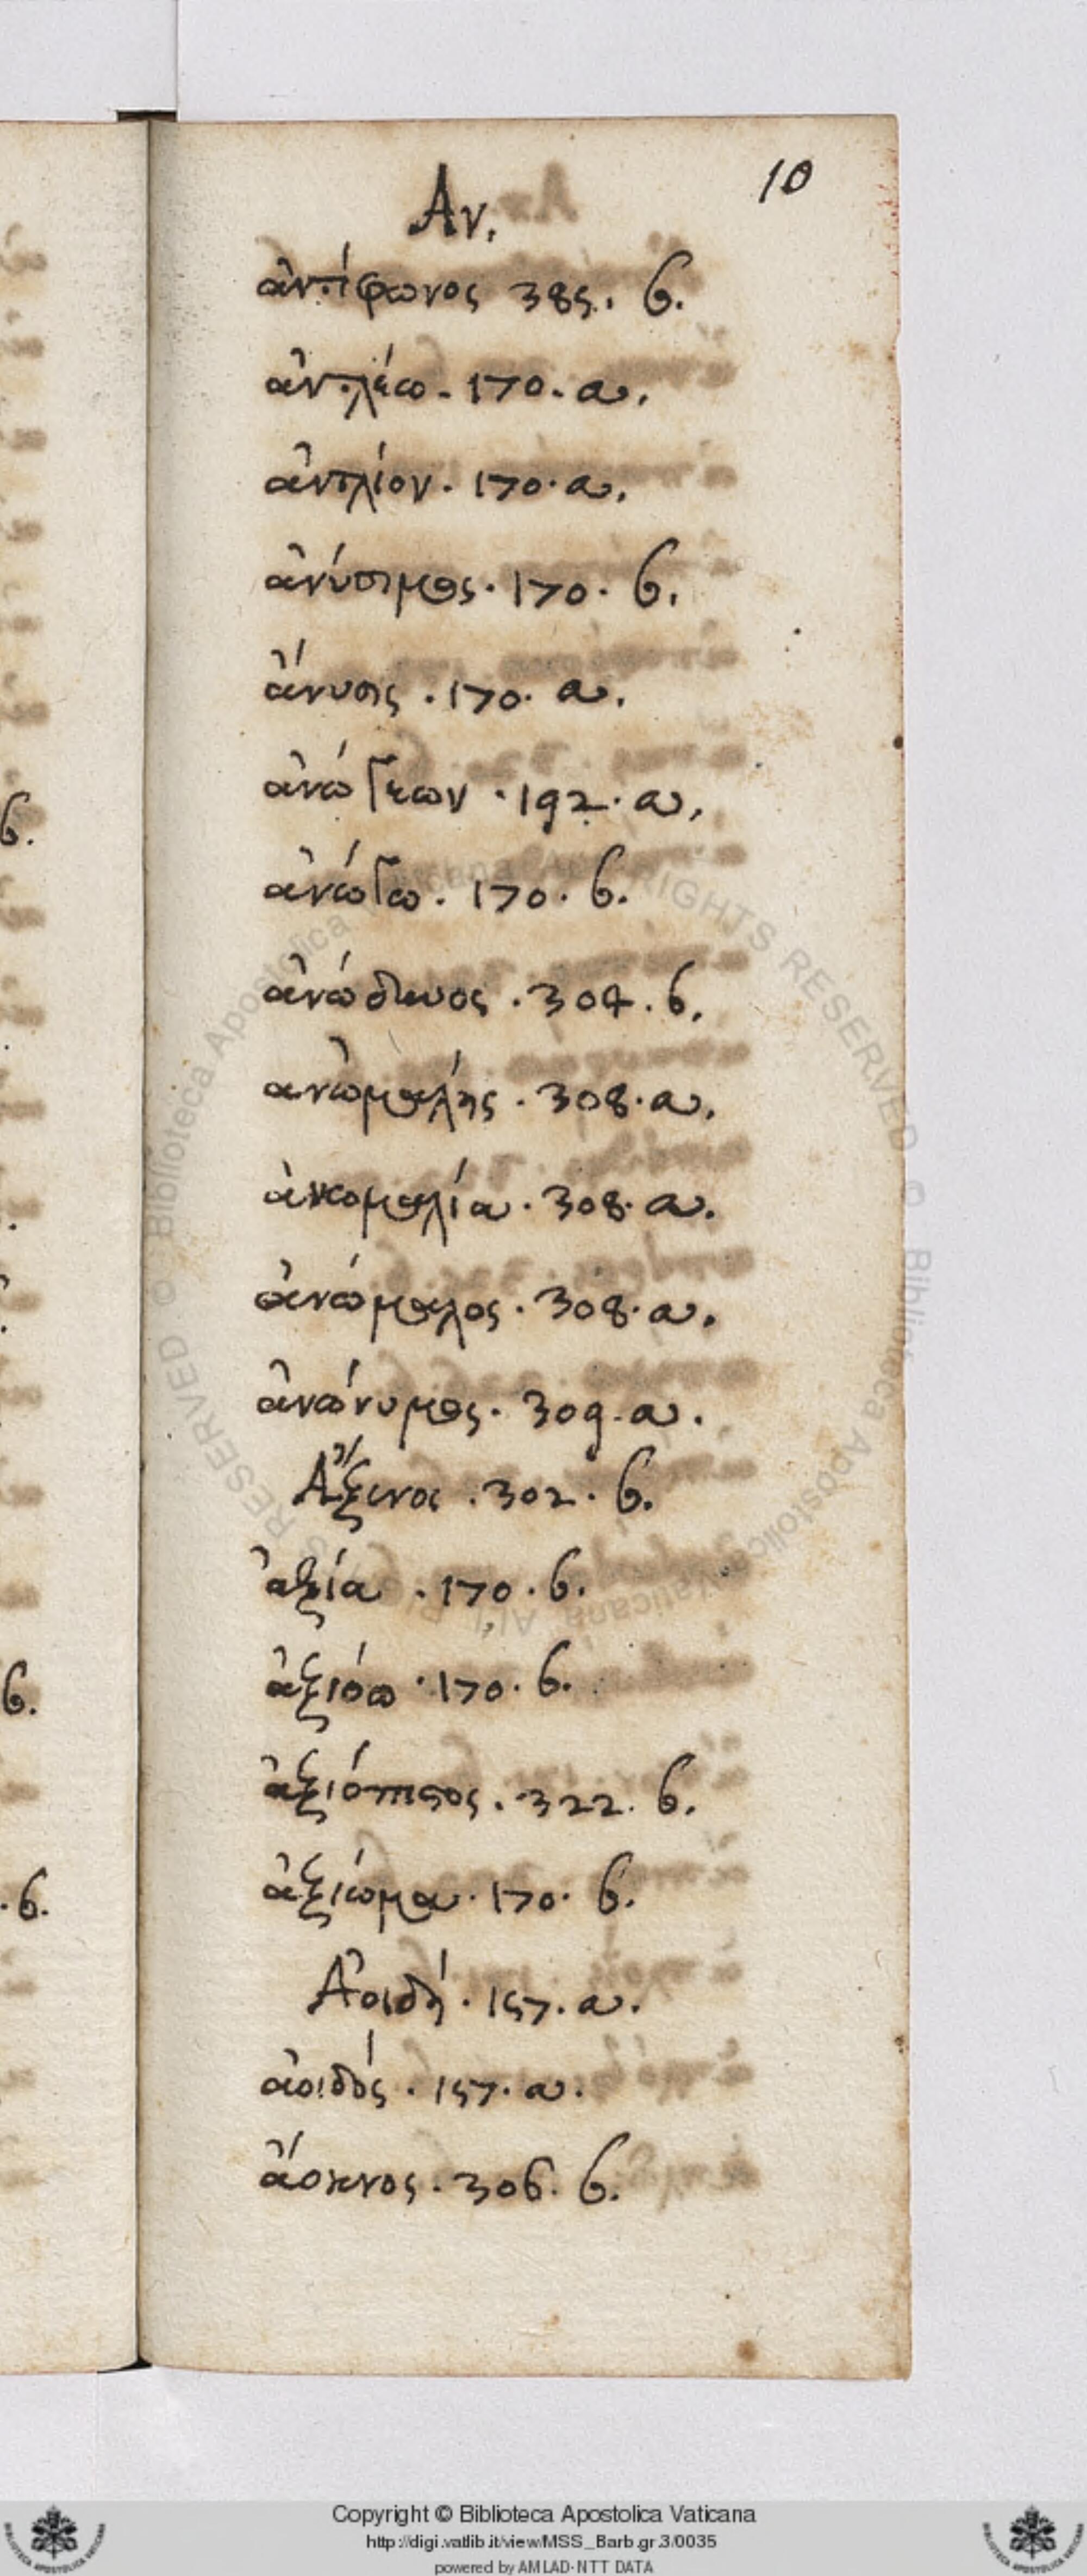 10
Αν.
ἀντίφωνος 385. β.
ἀντλέω. 170. α.
ἀντλίον. 170. α.
ἀνύσιμος. 170. β.
ἄνυσις. 170. α.
ἀνώγεων. 192. α.
ἀνώγω. 170. β.
ἀνώδυνος. 304. β.
ἀνωμαλής. 308. α.
ἀνωμαλία. 308. α.
ἀνώμαλος. 308. α.
ἀνώνυμος. 309. α.
Ἄξενος. 302. β.
ἀξία. 170. β.
ἀξιόω. 170. β.
ἀξιόπιστος. 322. β.
ἀξίωμα. 170. β.
Ἀοιδή. 157. α.
ἀοιδός. 157. α.
ἄοκνος. 306. β.
Copyright © Biblioteca Apostolica Vaticana
http://digi.vatlib.it/view/MSS_Barb.gr.3/0035
powered by AMLAD-NTT DATA